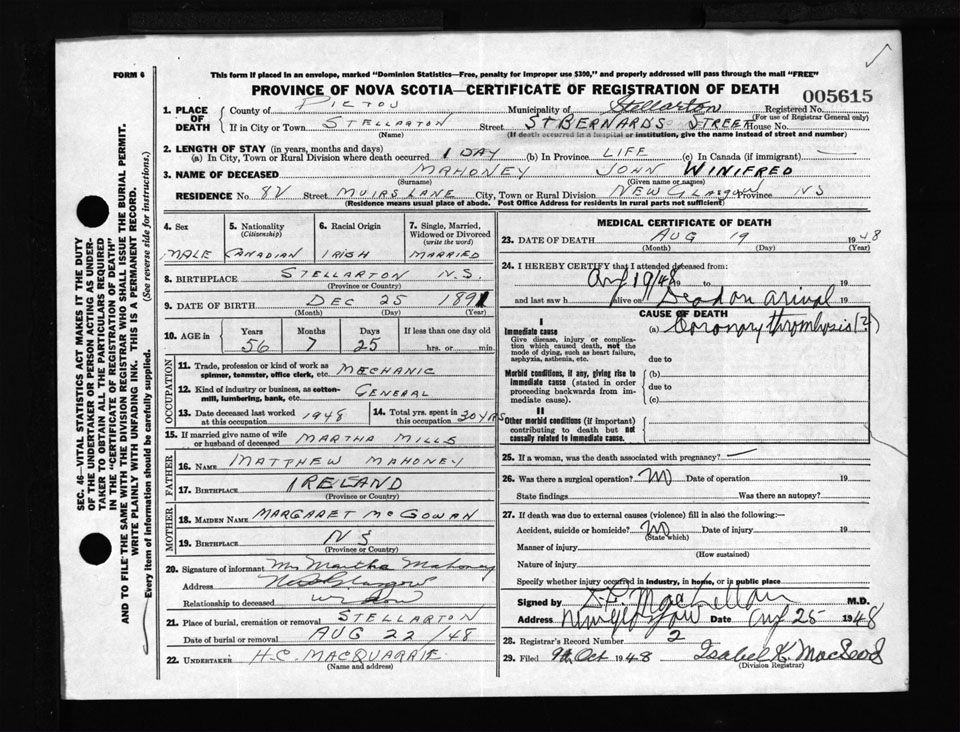 FORM 6
This form if placed in an envelope, marked "Dominion Statistics—Free, penalty for improper use $300," and properly addressed will pass through the mail "FREE"
PROVINCE OF NOVA SCOTIA—CERTIFICATE OF REGISTRATION OF DEATH
005615
1. PLACE OF DEATH { County of PICTOU Municipality of Stellarton Registered No.
(For use of Registrar General only)
If in City or Town STELLARTON Street ST BERNARDS STREET House No.
(Name) (If death occurred in a hospital or institution, give the name instead of street and number)
2. LENGTH OF STAY (in years, months and days)
(a) In City, Town or Rural Division where death occurred 1 DAY (b) In Province LIFE (c) In Canada (if immigrant) —
3. NAME OF DECEASED MAHONEY JOHN WINIFRED
(Surname) (Given name or names)
RESIDENCE No 82 Street MUIRS LANE City, Town or Rural Division NEW GLASGOW Province NS
(Residence means usual place of abode. Post Office Address for residents in rural parts not sufficient)
4. Sex 5. Nationality (Citizenship) 6. Racial Origin 7. Single, Married, Widowed or Divorced (write the word)
MALE CANADIAN IRISH MARRIED
8. BIRTHPLACE STELLARTON N.S.
(Province or Country)
9. DATE OF BIRTH DEC 25 1891
(Month) (Day) (Year)
10. AGE in { Years Months Days If less than one day old
56 7 25 hrs. or min.
OCCUPATION
11. Trade, profession or kind of work as spinner, teamster, office clerk, etc. MECHANIC
12. Kind of industry or business, as cotton-mill, lumbering, bank, etc. GENERAL
13. Date deceased last worked at this occupation 1948 14. Total yrs. spent in this occupation 30 YRS
15. If married give name of wife or husband of deceased MARTHA MILLS
FATHER
16. NAME MATTHEW MAHONEY
17. BIRTHPLACE IRELAND
(Province or Country)
MOTHER
18. MAIDEN NAME MARGARET MCGOWAN
19. BIRTHPLACE NS
(Province or Country)
20. Signature of informant Mrs Martha Mahoney
Address New Glasgow
Relationship to deceased widow
21. Place of burial, cremation or removal STELLARTON
Date of burial or removal AUG 22/48
22. UNDERTAKER H.C. MACQUARRIE
(Name and address)
MEDICAL CERTIFICATE OF DEATH
23. DATE OF DEATH AUG 19 1948
(Month) (Day) (Year)
24. I HEREBY CERTIFY that I attended deceased from:
Aug 19/48 19 to 19
and last saw h alive on Dead on arival 19
CAUSE OF DEATH
I
Immediate cause (a) Coronary thrombosis (?)
Give disease, injury or complication which caused death, not the mode of dying, such as heart failure, asphyxia, asthenia, etc.
due to
Morbid conditions, if any, giving rise to immediate cause (stated in order proceeding backwards from immediate cause).
(b)
due to
(c)
II
Other morbid conditions (if important) contributing to death but not causally related to immediate cause.
25. If a woman, was the death associated with pregnancy? —
26. Was there a surgical operation? No Date of operation 19
State findings Was there an autopsy?
27. If death was due to external causes (violence) fill in also the following:—
Accident, suicide or homicide? No Date of injury 19
(State which)
Manner of injury
(How sustained)
Nature of injury
Specify whether injury occurred in industry, in home, or in public place
Signed by MacLellan M.D.
Address New Glasgow Date Aug 25 1948
28. Registrar's Record Number 2
29. Filed 9th Oct 1948 Isabel K. MacLeod
(Division Registrar)
SEC. 46—VITAL STATISTICS ACT MAKES IT THE DUTY
OF THE UNDERTAKER OR PERSON ACTING AS UNDER-
TAKER TO OBTAIN ALL THE PARTICULARS REQUIRED
IN THE "CERTIFICATE OF REGISTRATION OF DEATH"
AND TO FILE THE SAME WITH THE DIVISION REGISTRAR WHO SHALL ISSUE THE BURIAL PERMIT.
WRITE PLAINLY WITH UNFADING INK. THIS IS A PERMANENT RECORD.
Every item of information should be carefully supplied. (See reverse side for instructions.)